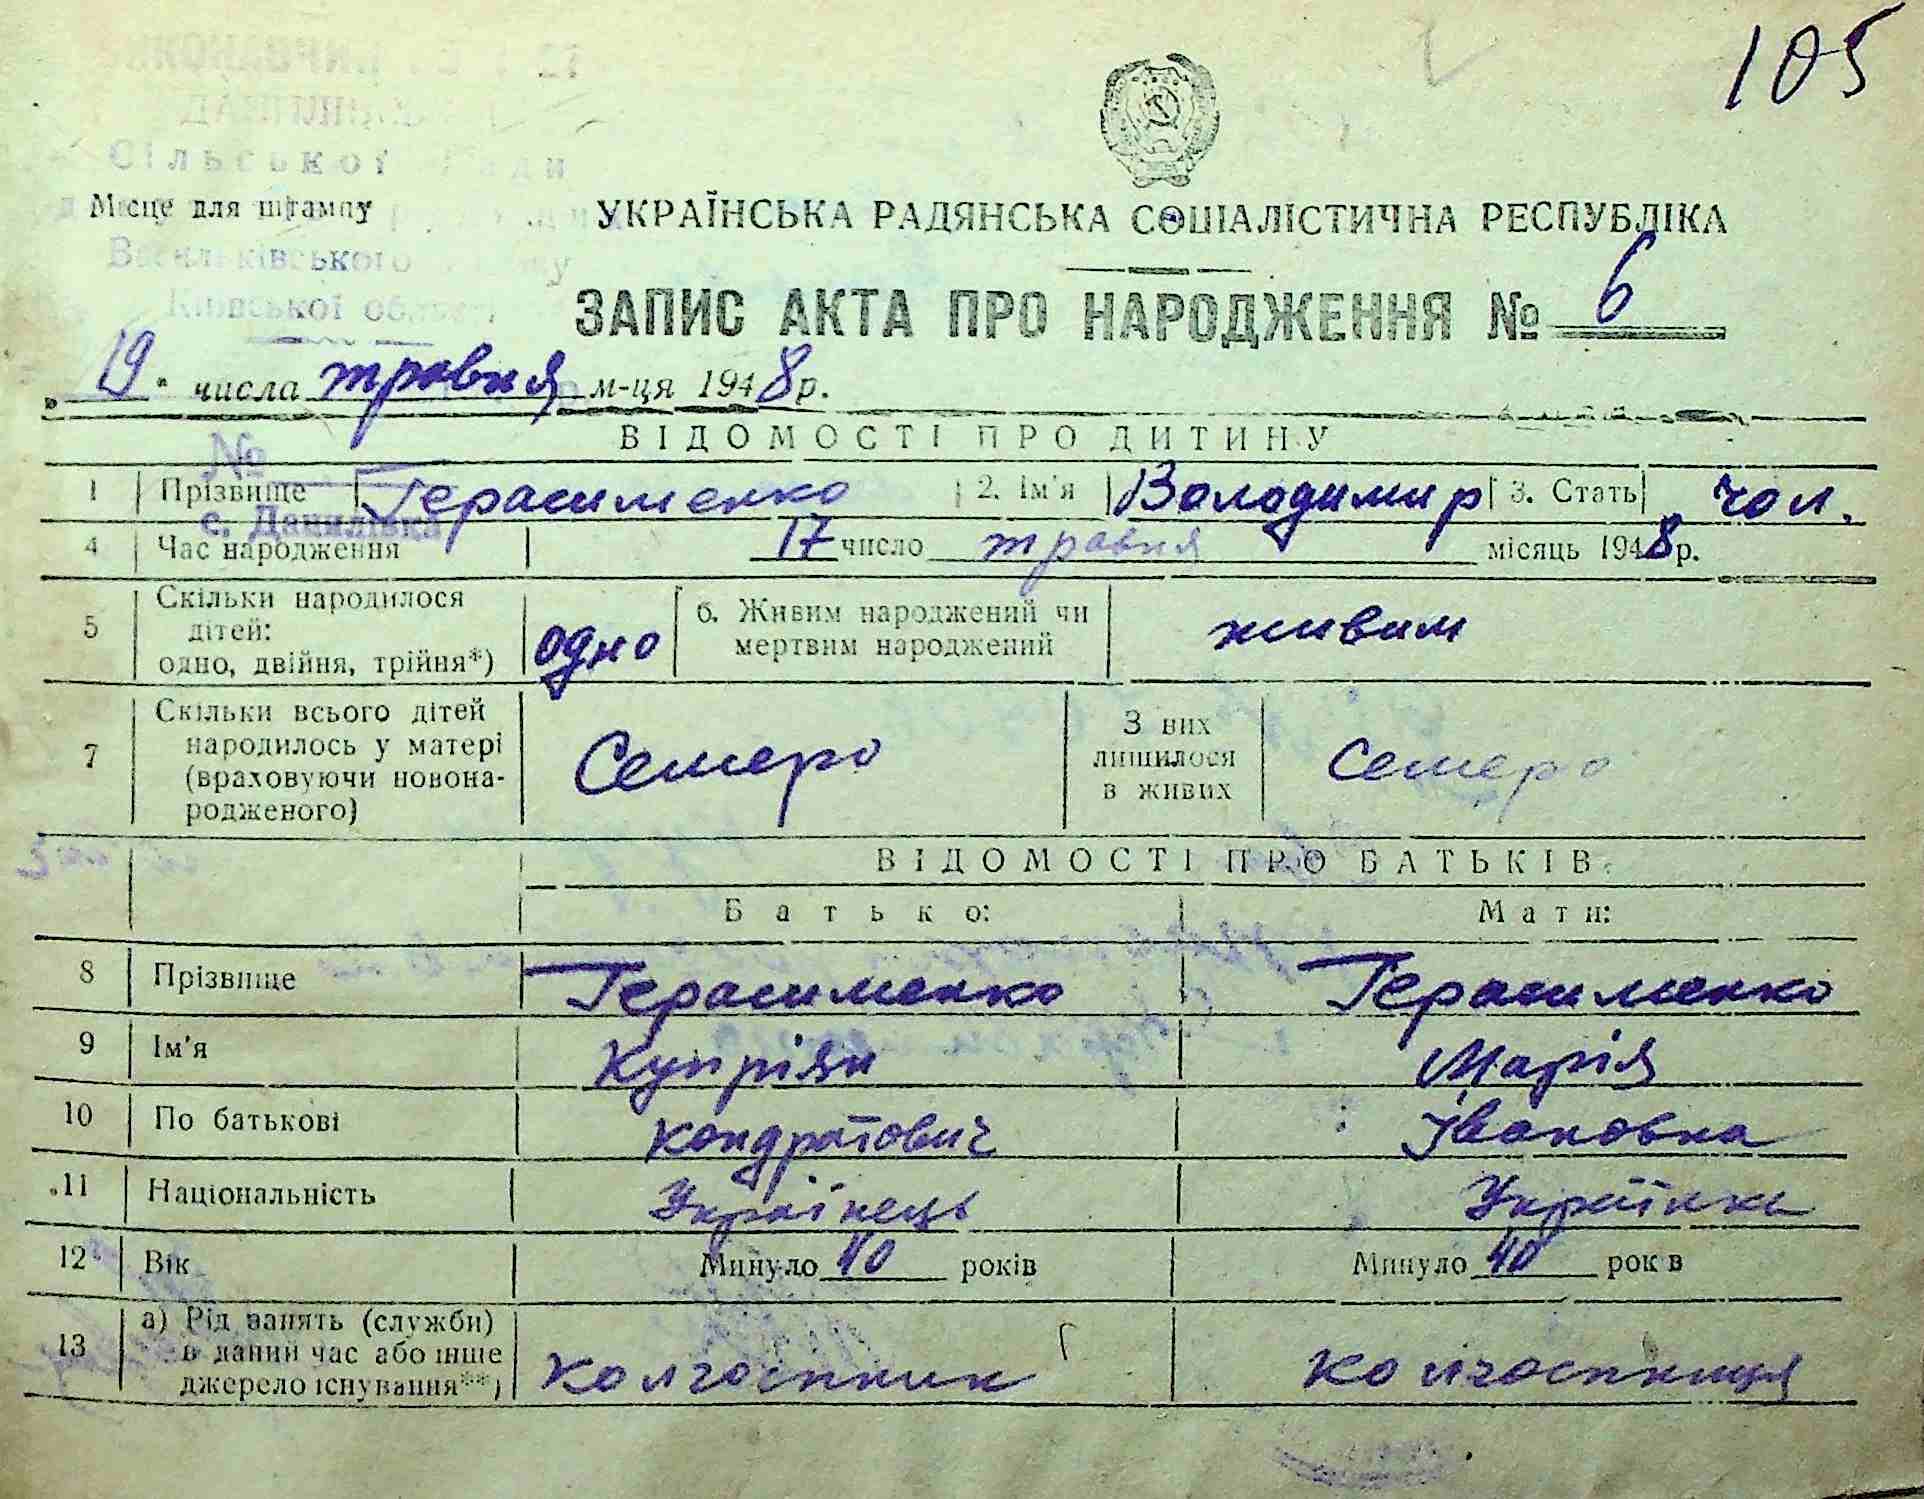 105
Сільської Ради
Місце для штампу
УКРАЇНСЬКА РАДЯНСЬКА СОЦІАЛІСТИЧНА РЕСПУБЛІКА
Васильківського
Київської області
ЗАПИС АКТА ПРО НАРОДЖЕННЯ № 6
„ 19 " числа травня м-ця 1948 р.
ВІДОМОСТІ ПРО ДИТИНУ
№
1 Прізвище Герасименко 2. Ім'я Володимир 3. Стать чол.
с. Данилівка
4 Час народження 17 число травня місяць 1948 р.
5 Скільки народилося дітей: одно, двійня, трійня*) одно 6. Живим народжений чи мертвим народжений живим
7 Скільки всього дітей народилось у матері (враховуючи новонародженого) Семеро З них лишилося в живих Семеро
ВІДОМОСТІ ПРО БАТЬКІВ:
Батько: Мати:
8 Прізвище Герасименко Герасименко
9 Ім'я Купріян Марія
10 По батькові Кондратович Івановна
11 Національність Українець Українка
12 Вік Минуло 40 років Минуло 40 рок в
13 а) Рід занять (служби) в даний час або інше джерело існування**) колгоспник колгоспниця